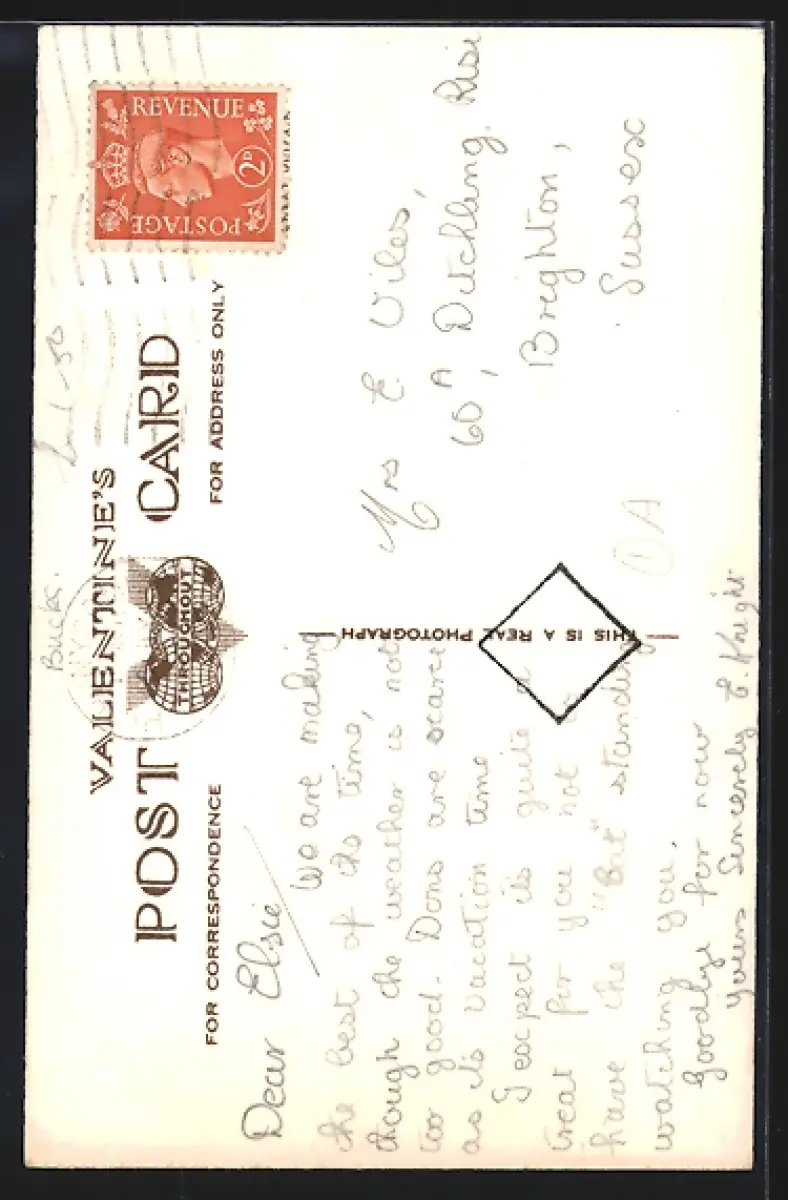 VALENTINE'S
POST CARD
THROUGHOUT
FOR CORRESPONDENCE
FOR ADDRESS ONLY
REVENUE
POSTAGE
2D
Bucks.
THIS IS A REAL PHOTOGRAPH
Dear Elsie
We are making
the best of the time,
though the weather is not
too good. Dons are scarce
as its vacation time
I expect its quite a
treat for you not to
have the "Bat" standing
watching you.
Goodbye for now
yours Sincerely E. Knight
Mrs E Viles,
60A, Ditchling Rise
Brighton,
Sussex
A